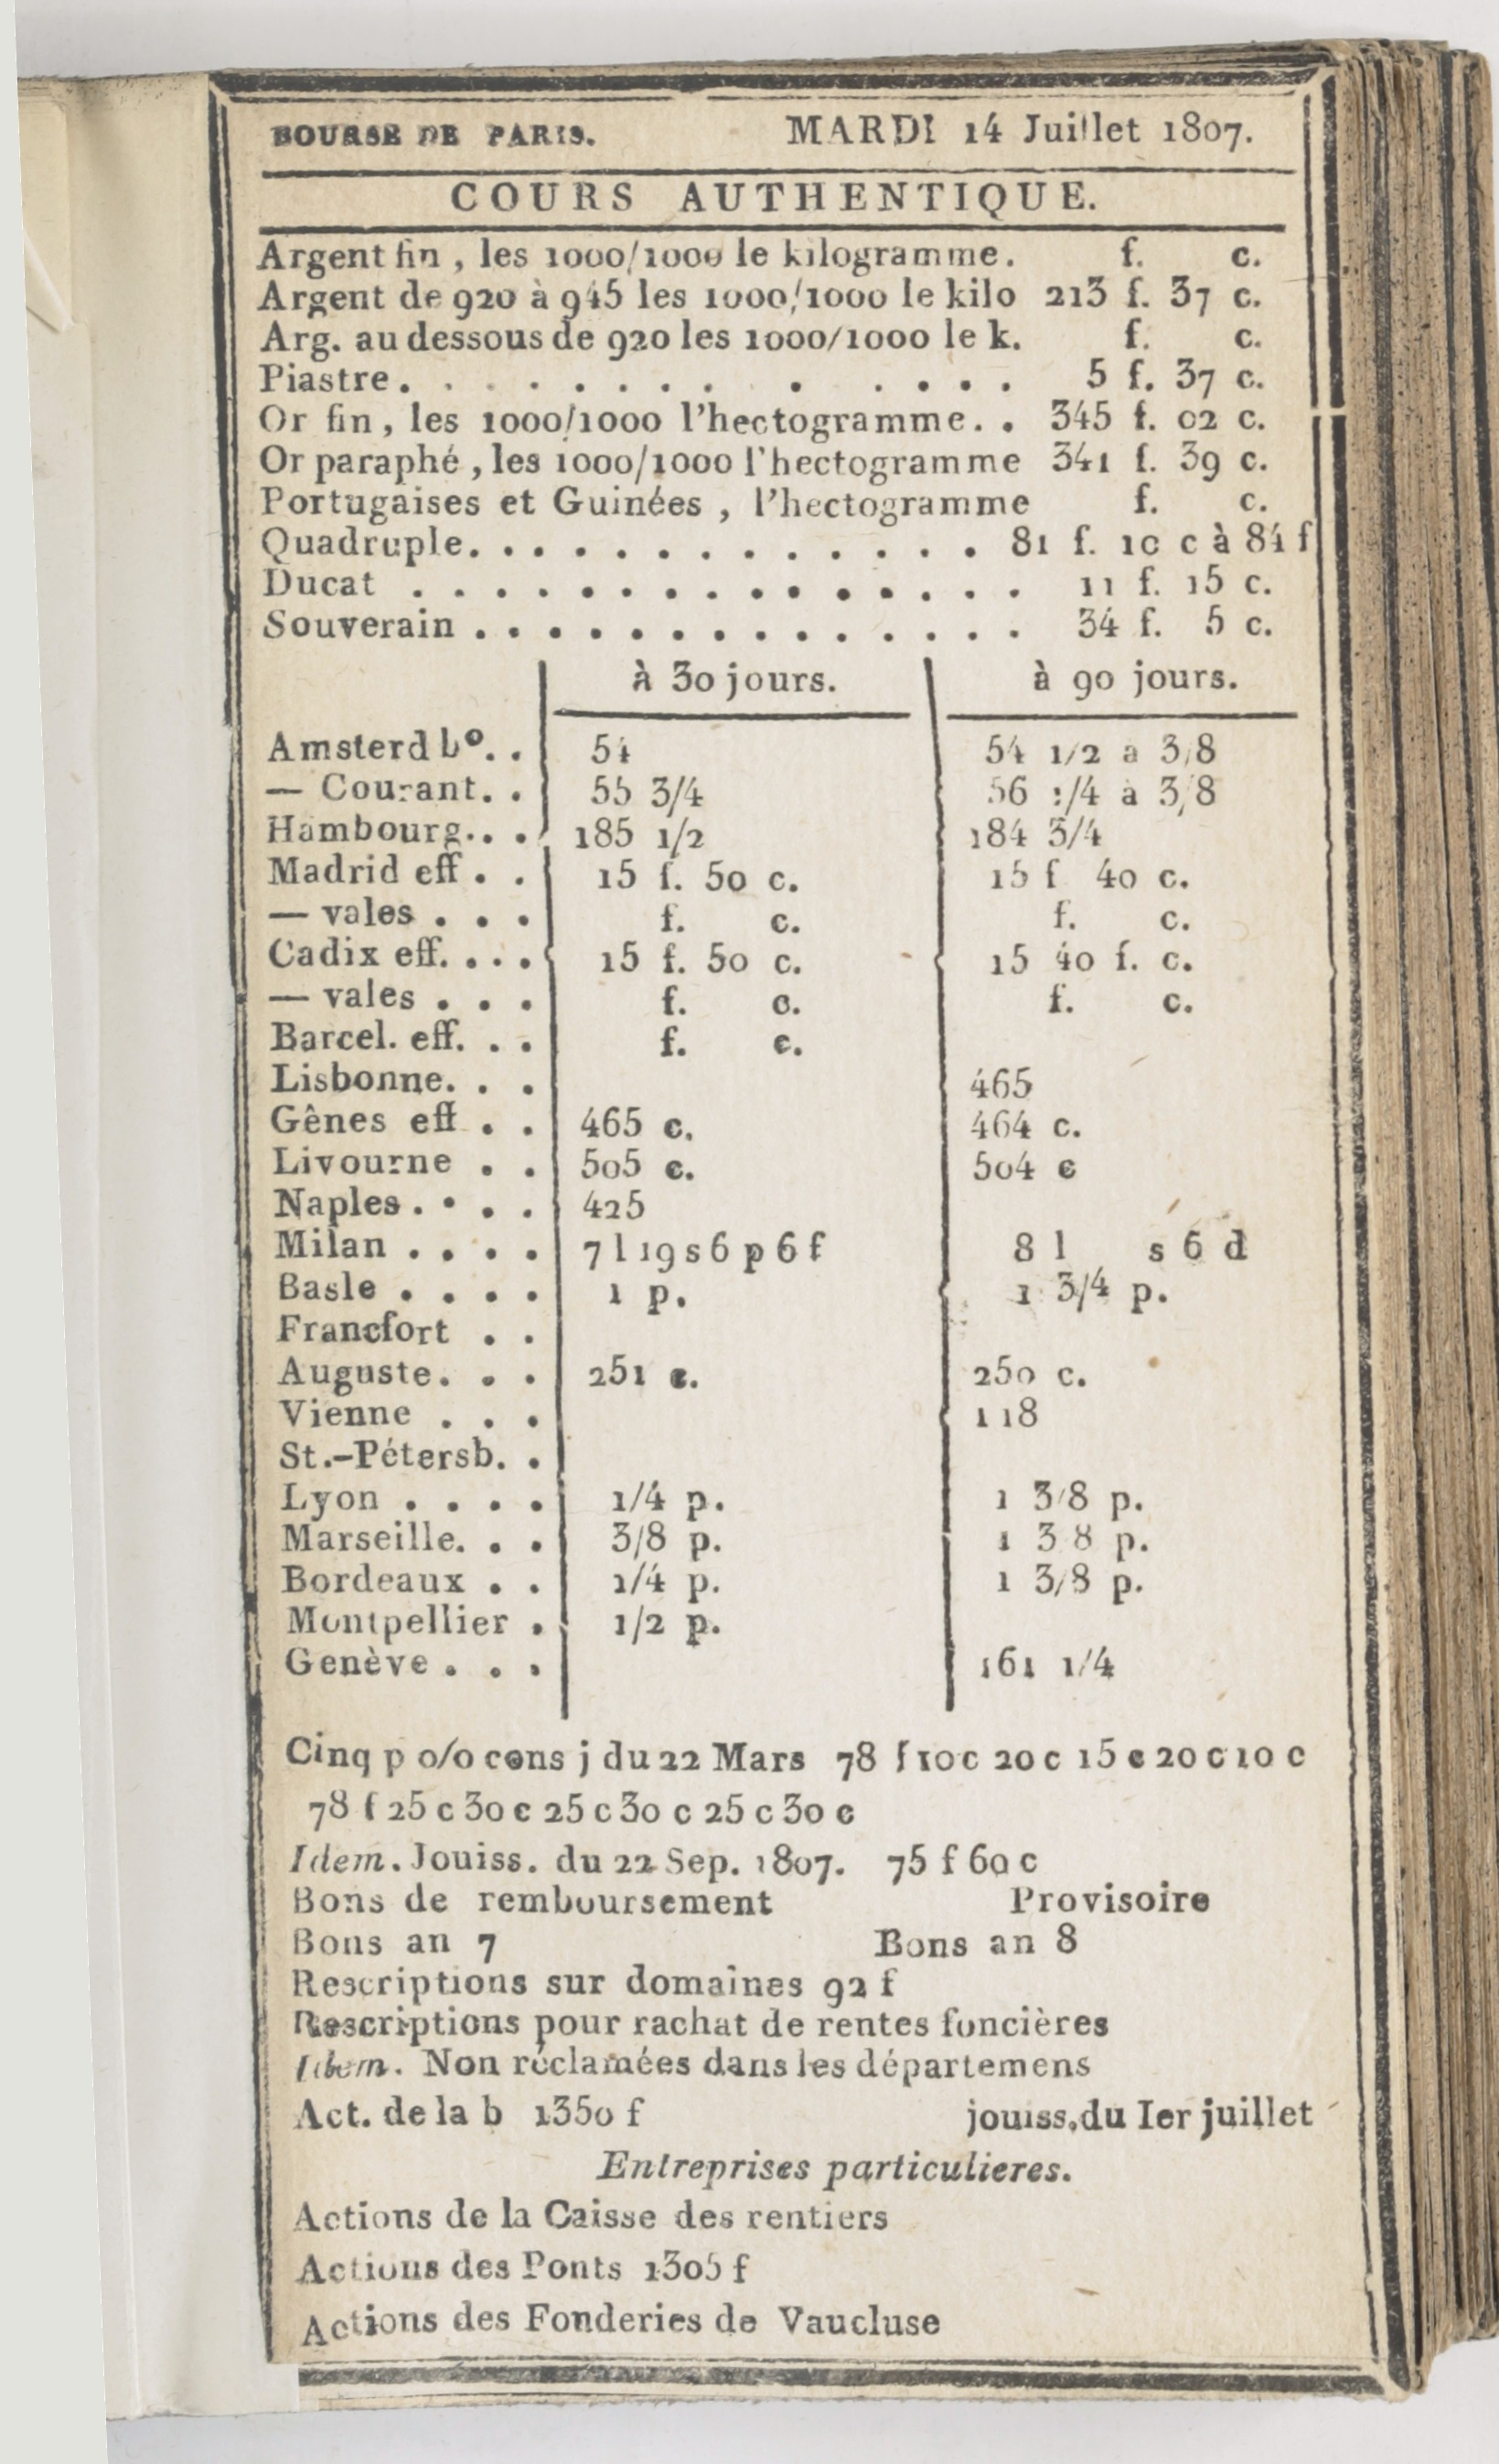 BOURSE DE PARIS. MARDI 14 Juillet 1807.
COURS AUTHENTIQUE.
Argent fin, les 1000/1000 le kilogramme. f. c.
Argent de 920 à 945 les 1000/1000 le kilo 213 f. 37 c.
Arg. au dessous de 920 les 1000/1000 le k. f. c.
Piastre. . . . . . . . . . . . . 5 f. 37 c.
Or fin, les 1000/1000 l'hectogramme. . 345 f. 02 c.
Or paraphé, les 1000/1000 l'hectogramme 341 f. 39 c.
Portugaises et Guinées, l'hectogramme f. c.
Quadruple. . . . . . . . . . . . . 81 f. 10 c à 84 f
Ducat . . . . . . . . . . . . . . . 11 f. 15 c.
Souverain . . . . . . . . . . . . . . 34 f. 5 c.
à 30 jours. à 90 jours.
Amsterd bo. . 54 54 1/2 à 3/8
— Courant. . 55 3/4 56 1/4 à 3/8
Hambourg. . . 185 1/2 184 3/4
Madrid eff . . 15 f. 50 c. 15 f 40 c.
— vales . . . f. c. f. c.
Cadix eff. . . . 15 f. 50 c. 15 40 f. c.
— vales . . . f. c. f. c.
Barcel. eff. . . f. c.
Lisbonne. . . 465
Gênes eff . . 465 c. 464 c.
Livourne . . 505 c. 504 c
Naples . . . . 425
Milan . . . . 7 l 19 s 6 p 6 f 8 l s 6 d
Basle . . . . 1 p. 1 3/4 p.
Francfort . .
Auguste. . . 251 c. 250 c.
Vienne . . . 118
St.-Pétersb. .
Lyon . . . . 1/4 p. 1 3/8 p.
Marseille. . . 3/8 p. 1 3 8 p.
Bordeaux . . 1/4 p. 1 3/8 p.
Montpellier . 1/2 p.
Genève . . . 161 1/4
Cinq p o/o cons j du 22 Mars 78 f 10 c 20 c 15 c 20 c 10 c
78 f 25 c 30 c 25 c 30 c 25 c 30 c
Idem. Jouiss. du 22 Sep. 1807. 75 f 60 c
Bons de remboursement Provisoire
Bons an 7 Bons an 8
Rescriptions sur domaines 92 f
Rescriptions pour rachat de rentes foncières
Idem. Non réclamées dans les départemens
Act. de la b 1350 f jouiss. du Ier juillet
Entreprises particulieres.
Actions de la Caisse des rentiers
Actions des Ponts 1305 f
Actions des Fonderies de Vaucluse